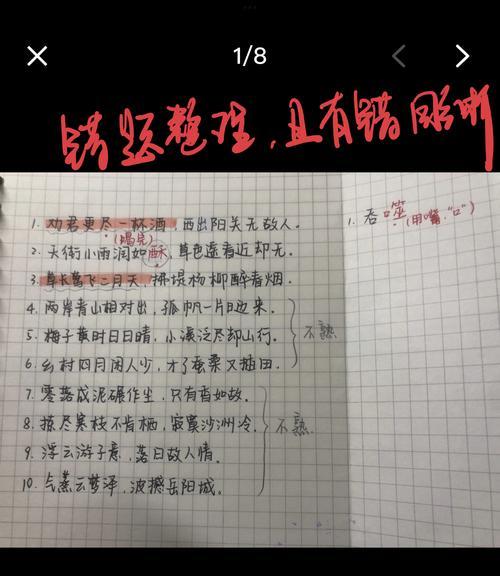 1/8
错题整理，且有错因分析
1. 劝君更尽一杯酒，西出阳关无故人。
(喝完)
2. 天街小雨润如酥，草色遥看近却无。
3. 草长莺飞二月天，拂堤杨柳醉春烟。
4. 两岸青山相对出，孤帆一片日边来。
5. 梅子黄时日日晴，小溪泛尽却山行。
不熟
6. 乡村四月闲人少，才了蚕桑又插田。
7. 零落成泥碾作尘，只有香如故。
8. 拣尽寒枝不肯栖，寂寞沙洲冷。
不熟
9. 浮云游子意，落日故人情。
10. 气蒸云梦泽，波撼岳阳城。
1. 吞噬 (用嘴，"口")